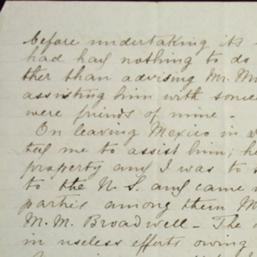 before undertaking its
had had nothing to do
ther than advising Mr. M
assisting him with some
were friends of mine.
On leaving Mexico in
me to assist him; he
property and I was to
to the U.S. and came
parties among them M
M. M. Broadwell - The
in useless efforts owing